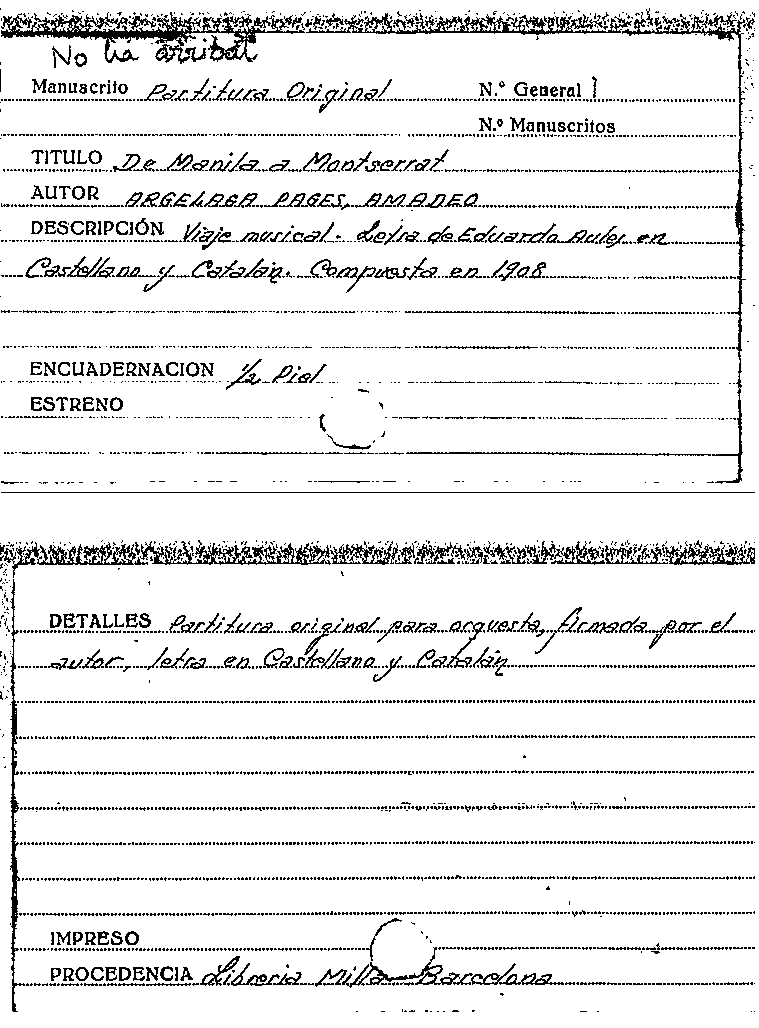 No ha arribat
Manuscrito Partitura Original N.º General 1
N.º Manuscritos
TITULO De Manila a Montserrat
AUTOR ARGELAGA PAGES, AMADEO
DESCRIPCIÓN Viaje musical. Letra de Eduardo Aules en
Castellano y Catalán. Compuesta en 1908
ENCUADERNACION 1/2 Piel
ESTRENO
DETALLES Partitura original para orquesta, firmada por el
autor, letra en Castellano y Catalán
IMPRESO
PROCEDENCIA Libreria Milla Barcelona